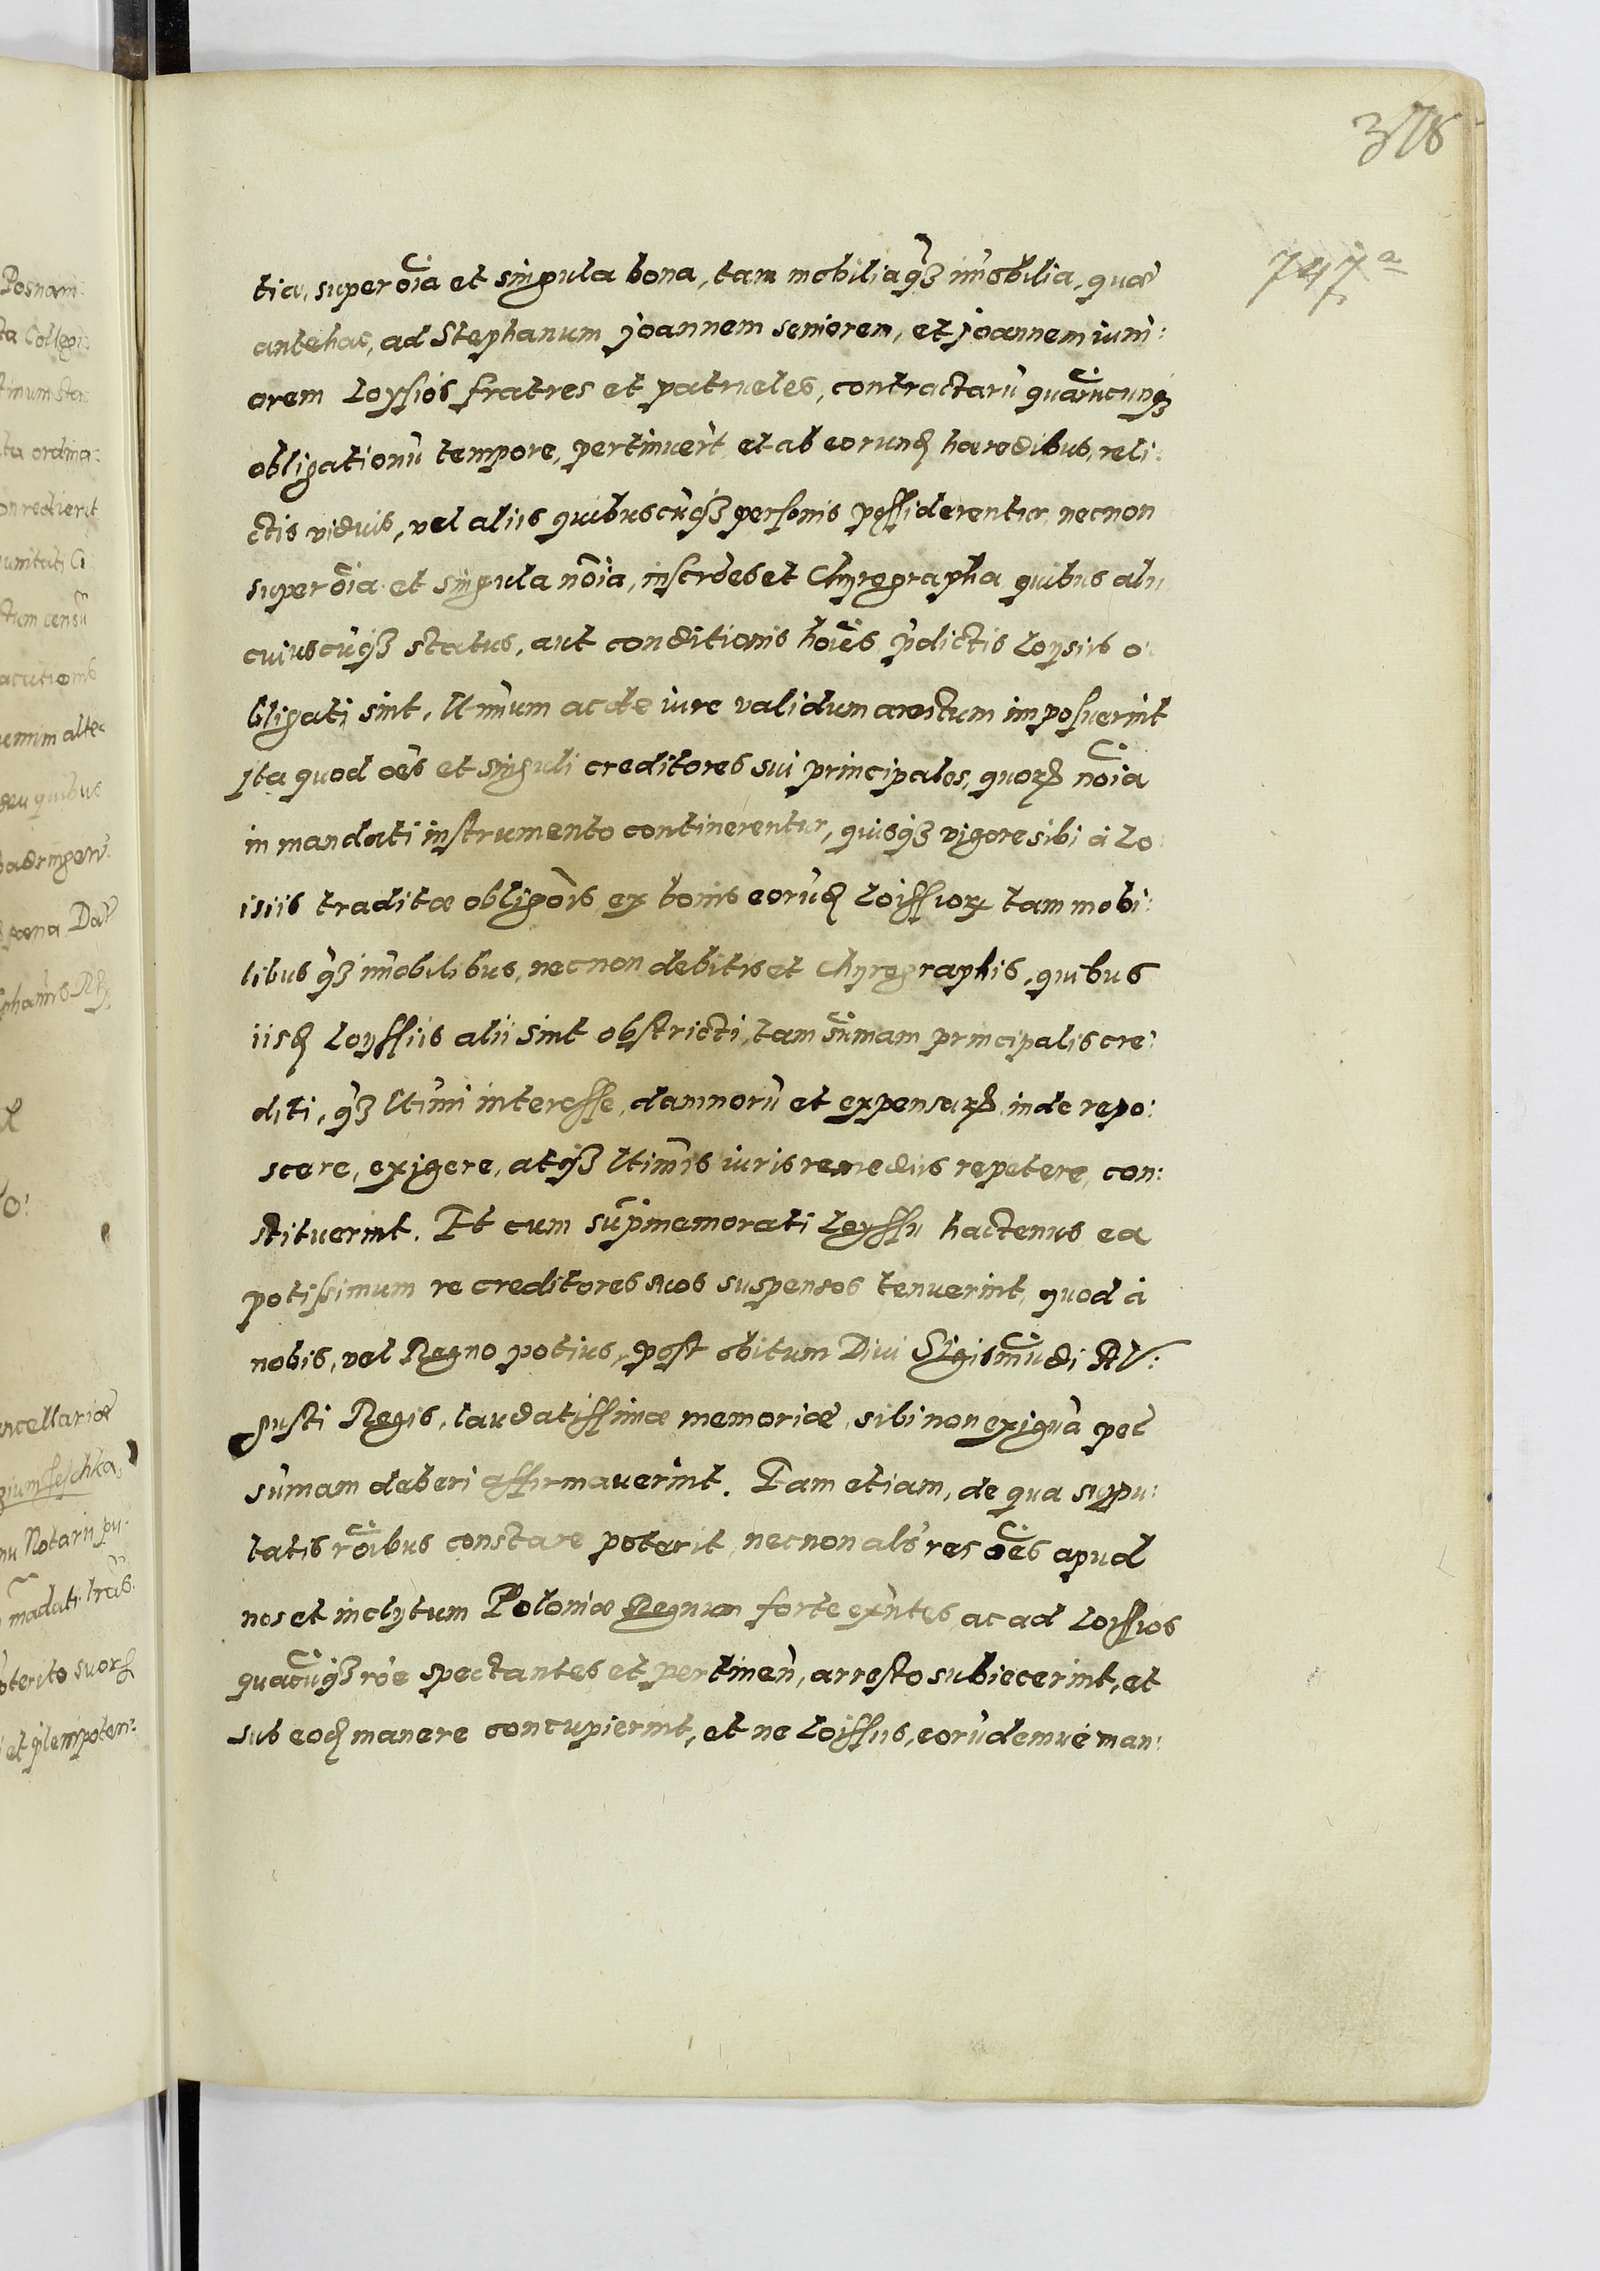 378
747ª
tia, super õia et singula bona, tam mobilia q̃ꝫ im̃obilia, quæ
antehac, ad Stephanum Joannem seniorem, et Joannem iuni:
orem Loysios fratres et patrueles, contractarũ quarũcunqꝫ
obligationũ tempore, pertinuerĩt et ab eorundẽ hæredibus, reli:
ctis viduis, vel aliis quibuscũqꝫ personis possiderentur, necnon
super õia et singula nõia, inscrões et Chyrographa quibus alii
cuiuscũqꝫ status, aut conditionis hoĩes p̃dictis Loysiis o:
bligati sint, ltimum ac de iure validum arestum imposuerint
Ita quod oẽs et singuli creditores sui principales, quorũ nõia
in mandati instrumento continerentur, quisqꝫ vigore sibi à Lo:
isiis traditæ obligõis ex bonis eorũdẽ Loissiorũ tam mobi:
libus q̃ꝫ im̃obilibus, necnon debitis et Chyrographis, quibus
iisdẽ Loyssiis alii sint obstricti, tam sum̃am principalis cre:
diti, q̃ꝫ ltimi interesse, damnorũ et expensarũ inde repo:
scere, exigere, atqꝫ ltimis iuris remediis repetere, con:
stituerint. Et cum sup̃memorati Loyssii hactenus ea
potissimum re creditores suos suspensos tenuerint, quod à
nobis, vel Regno potius, post obitum Divi Sigismũdi Au:
gusti Regis, laudatissimæ memoriæ, sibi non exiguã pec̃
sum̃am deberi affirmauerint. Eam etiam, de qua suppu:
tatis rõibus constare poterit, necnon als̃ res oẽs apud
nos et inclytum Poloniæ Regnum forte exñtes ac ad Loissios
quacũqꝫ rõe spectantes et pertineñ, arresto subiecerint, et
sub eodẽ manere concupierint, et ne Loissiis, eorũdemue man: